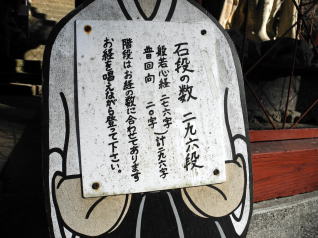 石段の数 二九六段
般若心経 二七六字
普回向 二〇字
計二九六字
階段はお経の数に合わせてあります
お経を唱えながら登って下さい。